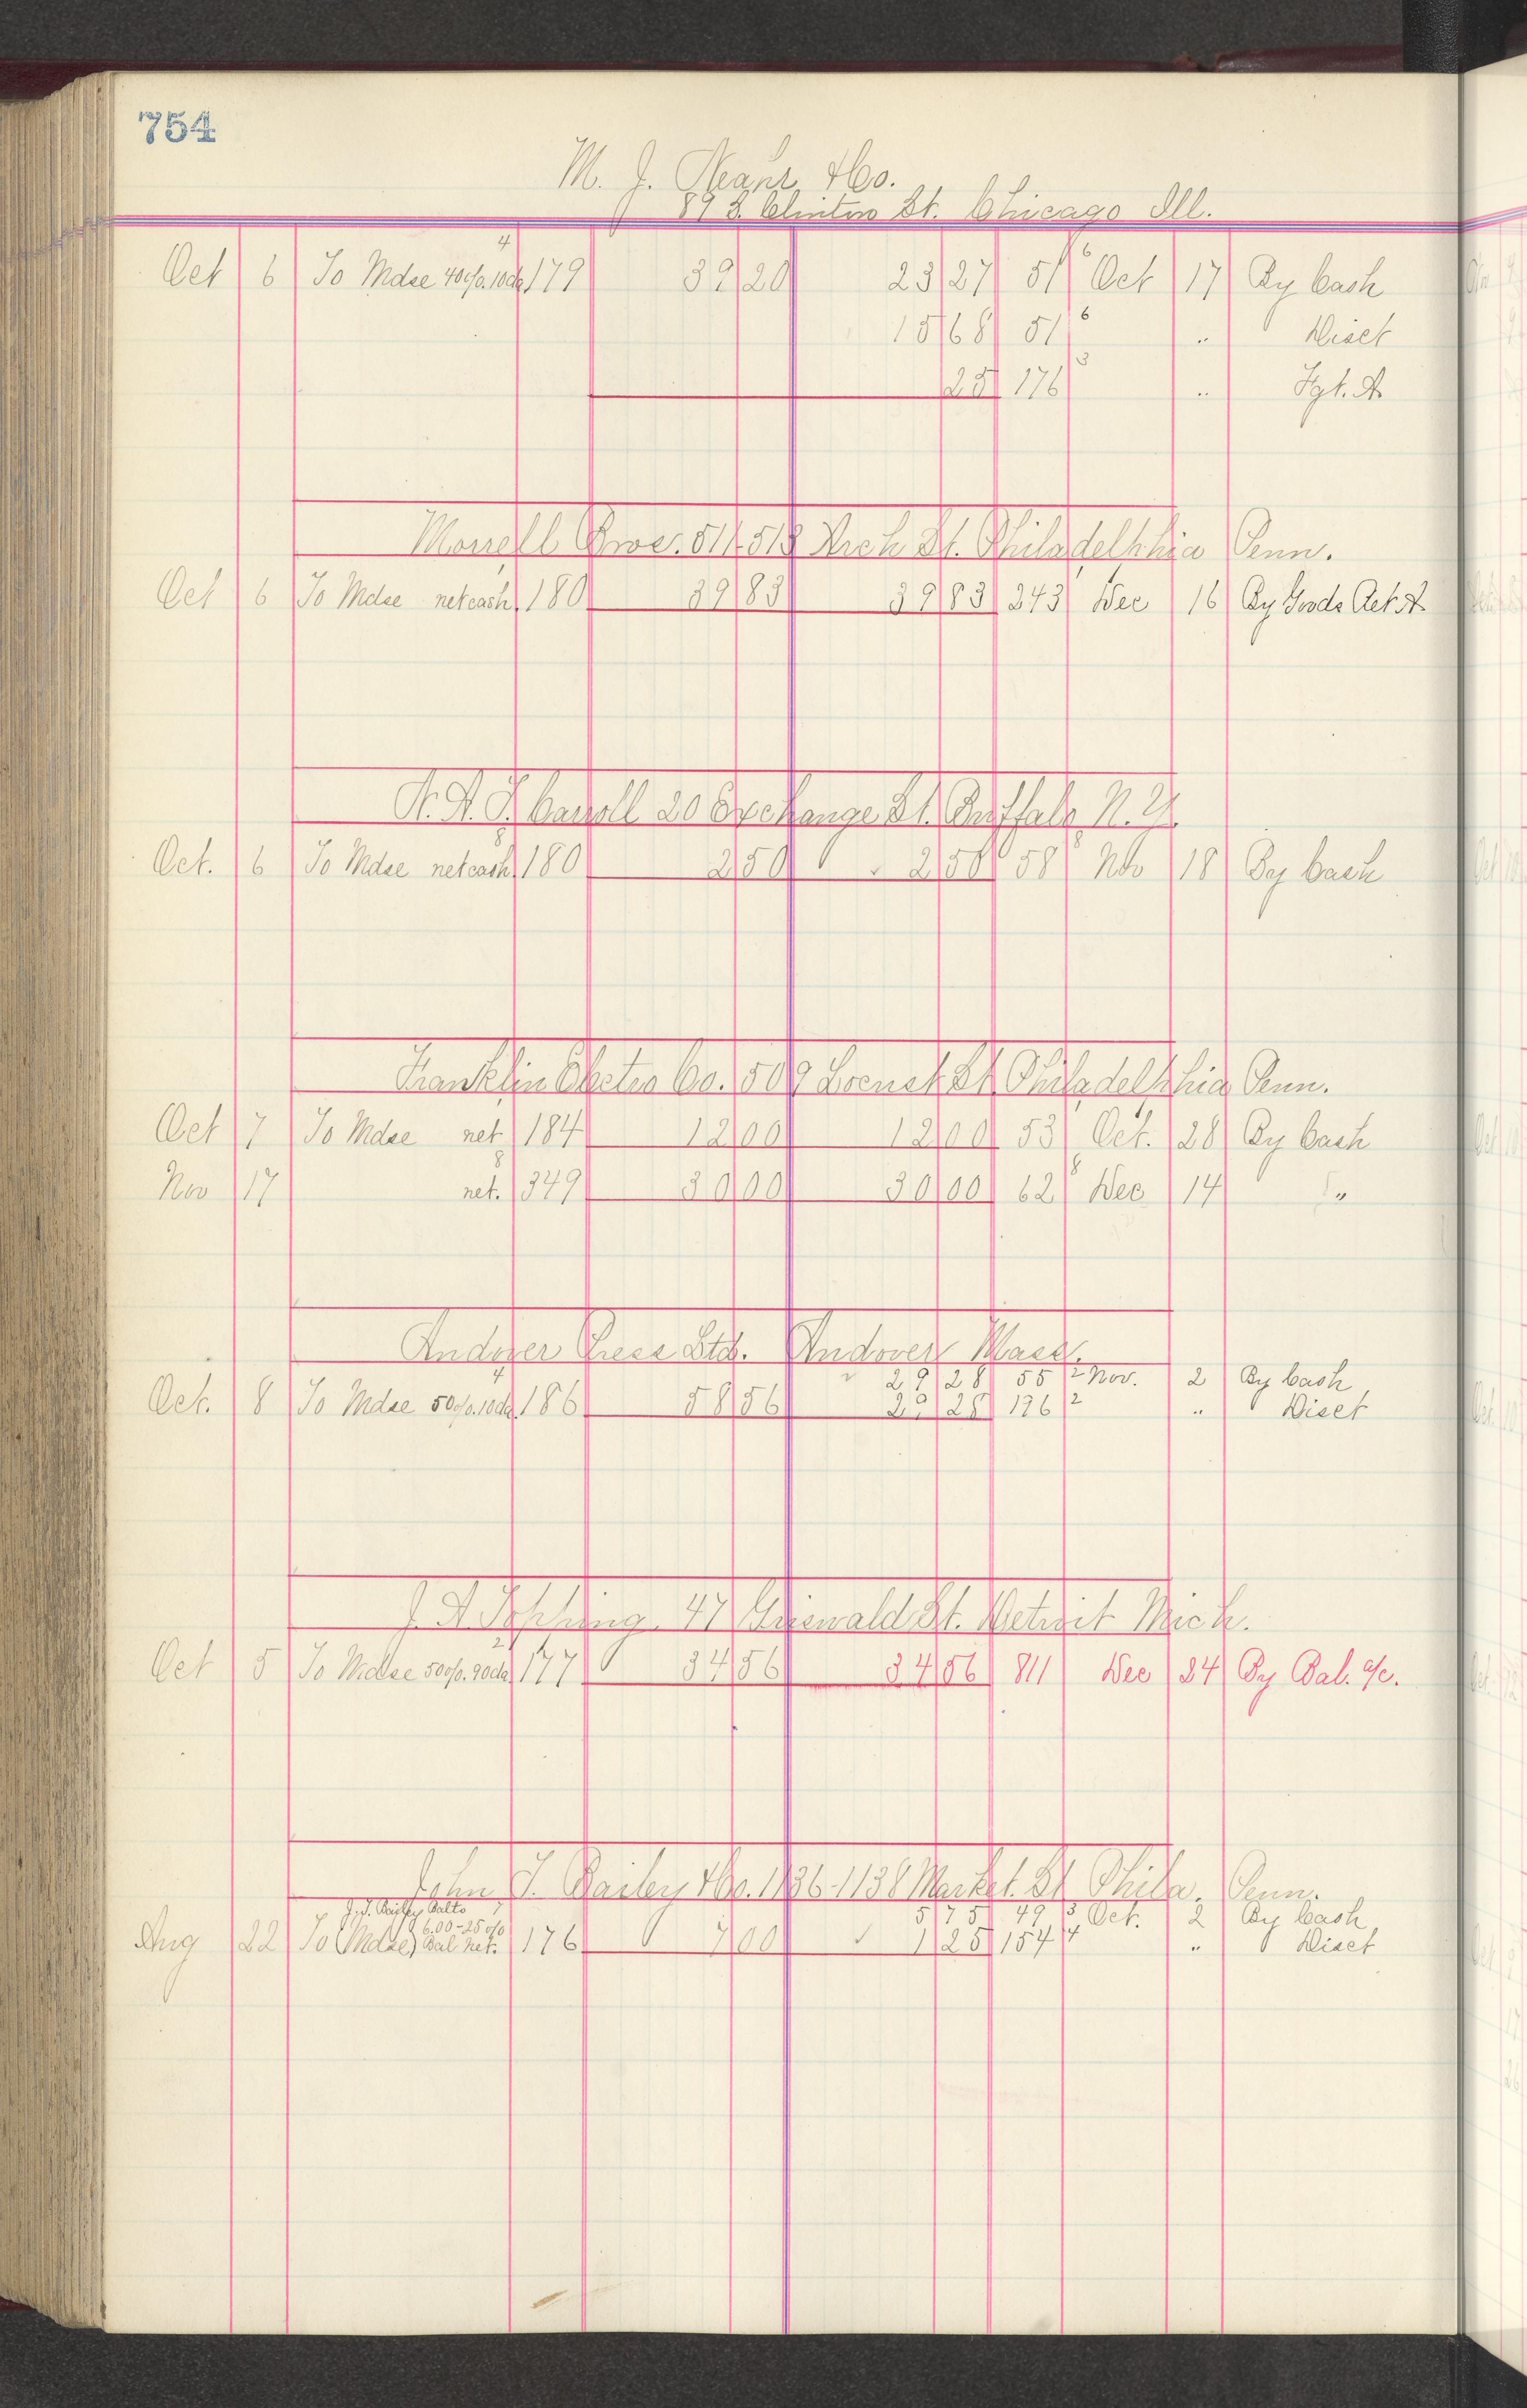 754
M. J. & Co.
89 S. Clinton St. Chicago Ill.
4 6
Oct 6 To Mdse 40% 10da 179 39 20 23 27 51 Oct 17 By Cash
15 68 51 6 " Disct
25 176 3 " Fgt. A
Morrell Bros. 514-518 Arch St. Philadelphia Penn.
Oct 6 To Mdse net cash 180 39 83 39 83 243 Dec 16 By Goods Ret A
Carroll 20 Exchange St. Buffalo N.Y.
8
Oct. 6 To Mdse net cash 180 2 50 ✓ 2 50 58 Nov 18 By Cash
Franklin Electro Co. 509 Locust St. Philadelphia Penn.
Oct 7 To Mdse net 184 12 00 12 00 53 Oct. 28 By Cash
8 8
Nov 17 net. 349 30 00 30 00 62 Dec 14 "
Andover Press Ltd. Andover Mass.
4 29 28 55 2 Nov. 2 By Cash
Oct. 8 To Mdse 50% 10da 186 58 56 29 28 196 2 " Disct
J. A. Topping 47 Griswald St. Detroit Mich.
2
Oct 5 To Mdse 50% 90da 177 34 56 34 56 811 Dec 24 By Bal. a/c.
John J. Bailey & Co. 1136-1138 Market St Phila. Penn.
J. J. Bailey Balto 7 5 75 49 3 Oct. 2 By Cash
6.00-25%
Aug 22 To (Mdse) Bal net. 176 7 00 ✓ 1 25 154 4 " Disct